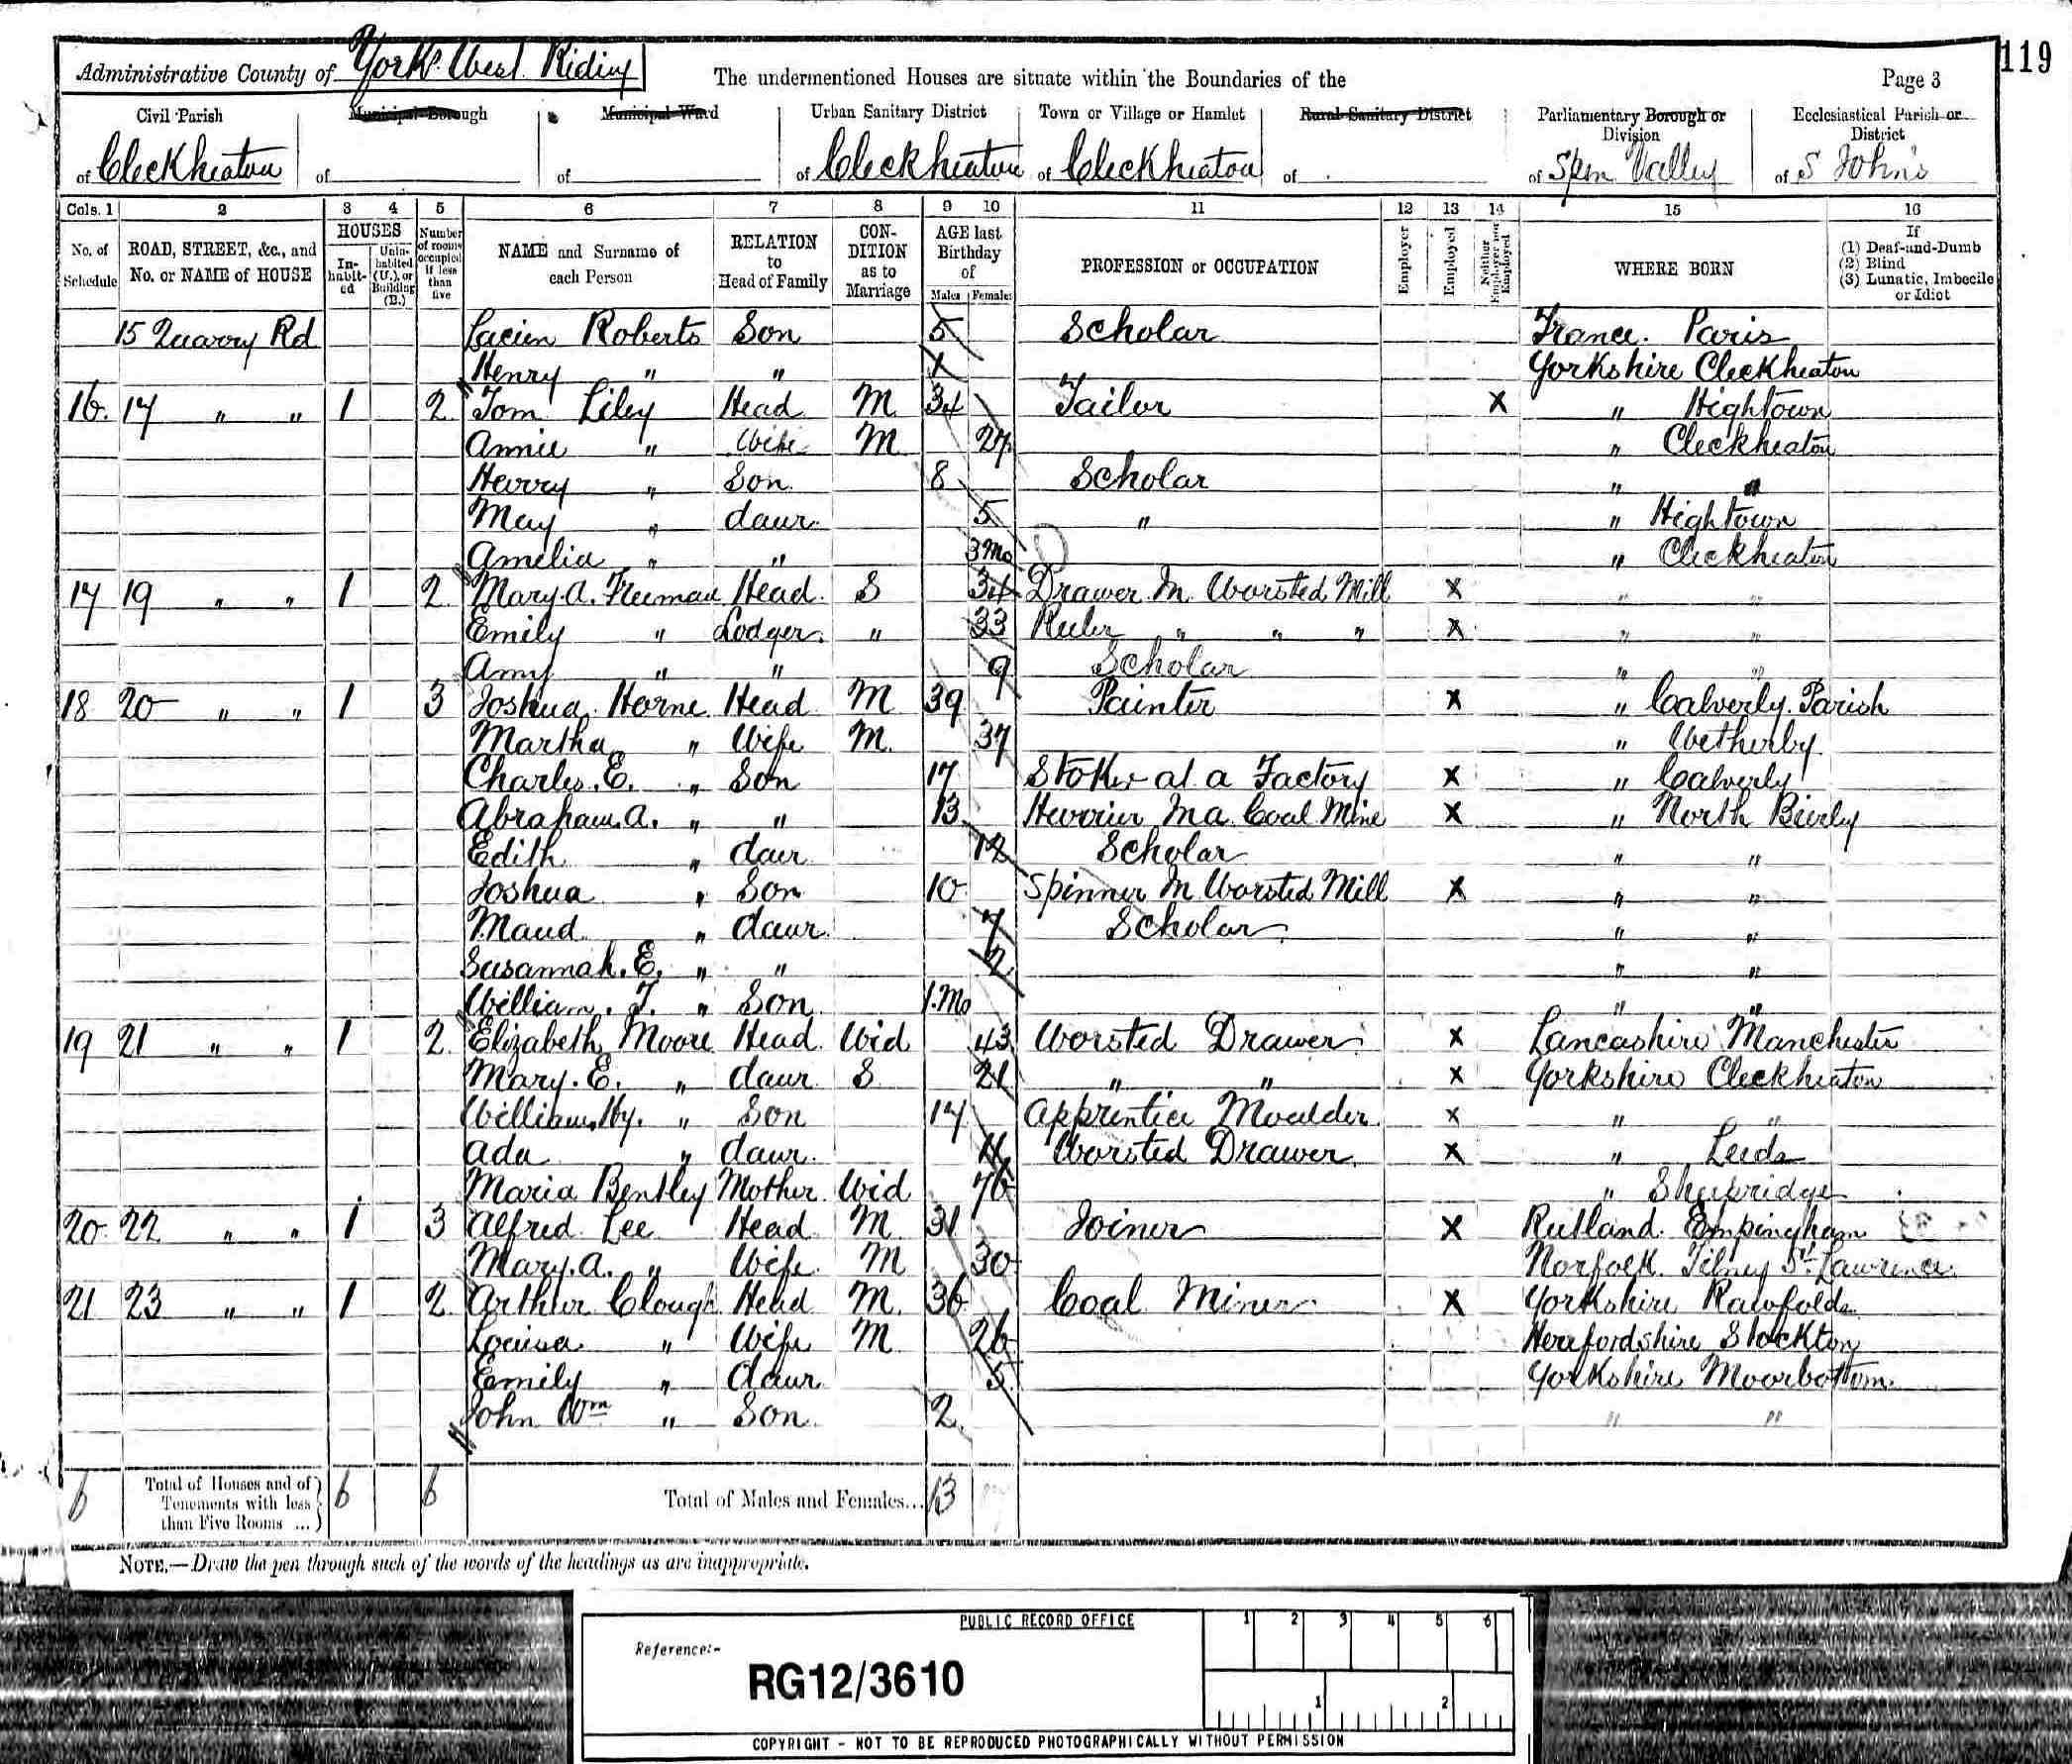 119
Administrative County of York. West Riding The undermentioned Houses are situate within the Boundaries of the Page 3
Civil Parish Municipal Borough Municipal Ward Urban Sanitary District Town or Village or Hamlet Rural Sanitary District Parliamentary Borough or Division Ecclesiastical Parish or District
of Cleckheaton of of of Cleckheaton of Cleckheaton of of Spen Valley of S John's
Cols. 1 2 3 4 5 6 7 8 9 10 11 12 13 14 15 16
No. of Schedule ROAD, STREET, &c., and No. or NAME of HOUSE HOUSES Inhabited Uninhabited (U.), or Building (B.) Number of rooms occupied if less than five NAME and Surname of each Person RELATION to Head of Family CONDITION as to Marriage AGE last Birthday of Males Females PROFESSION or OCCUPATION Employer Employed Neither Employer nor Employed WHERE BORN If (1) Deaf-and-Dumb (2) Blind (3) Lunatic, Imbecile or Idiot
15 Quarry Rd Lucien Roberts Son 5 Scholar France. Paris
Henry " " 1 Yorkshire Cleckheaton
16. 17 " " 1 2 Tom Liley Head M 34 Tailor X " Hightown
Annie " Wife M 27 " Cleckheaton
Harry " Son 8 Scholar " "
May " daur. 5 " " Hightown
Amelia " " 3 Mo " Cleckheaton
17 19 " " 1 2 Mary A. Freeman Head S 34 Drawer In Worsted Mill X " "
Emily " Lodger " 33 Reeler " " " X " "
Amy " " 9 Scholar " "
18 20 " " 1 3 Joshua Horne Head M 39 Painter X " Calverly Parish
Martha " Wife M. 37 " Wetherby
Charles. E. " Son 17 Stoker at a Factory X " Calverly
Abraham. A. " " 13 Hurrier In a Coal Mine X " North Bierly
Edith " daur 12 Scholar " "
Joshua " Son 10 Spinner In Worsted Mill X " "
Maud " daur. 7 Scholar " "
Susannah. E. " " 2 " "
William. T. " Son 1. Mo " "
19 21 " " 1 2 Elizabeth Moore Head Wid 43 Worsted Drawer X Lancashire Manchester
Mary. E. " daur S 21 " " X Yorkshire Cleckheaton
William. Hy. " Son 17 Apprentice Moulder X " "
Ada " daur. 11 Worsted Drawer X " Leeds
Maria Bentley Mother Wid 76 "
20 22 " " 1 3 Alfred Lee Head M 31 Joiner X Rutland Empingham
Mary. A. " Wife M 30 Norfolk. Tilney St. Lawrence
21 23 " " 1 2 Arthur Clough Head M. 36 Coal Miner X Yorkshire Rawfolds
Louisa " Wife M 26 Herefordshire Stockton
Emily " daur 5 Yorkshire Moorbottom
John Wm " Son 2 " "
6 Total of Houses and of Tenements with less than Five Rooms ... 6 6 Total of Males and Females... 13
NOTE.—Draw the pen through such of the words of the headings as are inappropriate.
PUBLIC RECORD OFFICE 1 2 3 4 5 6
Reference:-
RG12/3610
1 2
COPYRIGHT - NOT TO BE REPRODUCED PHOTOGRAPHICALLY WITHOUT PERMISSION